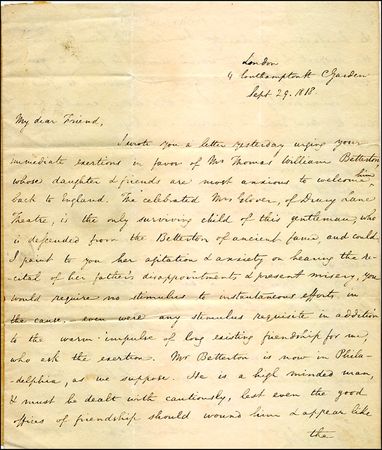 London
4 Southampton St C Garden
Sept 29. 1818
My dear Friend,
I wrote you a letter yesterday urging your
immediate exertions in favor of Mr Thomas William Betterton
whose daughter & friends are most anxious to welcome him
back to England. The celebrated Mrs Glover, of Drury Lane
Theatre, is the only surviving child of this gentleman, who
is descended from the Betterton of ancient fame, and could
I paint to you her agitation & anxiety on hearing the re-
cital of her father's disappointments & present misery, you
would require no stimulus to instantaneous efforts in
the cause. even were any stimulus requisite in addition
to the warm impulse of long existing friendship for me,
who ask the exertion. Mr Betterton is now in Phila-
delphia, as we suppose. He is a high minded man,
& must be dealt with cautiously, lest even the good
offices of friendship should wound him & appear like
the